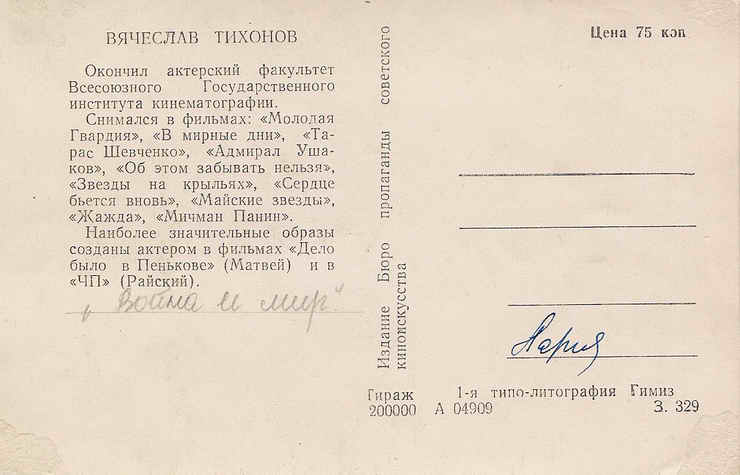 ВЯЧЕСЛАВ ТИХОНОВ
Окончил актерский факультет
Всесоюзного Государственного
института кинематографии.
Снимался в фильмах: «Молодая
Гвардия», «В мирные дни», «Та-
рас Шевченко», «Адмирал Уша-
ков», «Об этом забывать нельзя»,
«Звезды на крыльях», «Сердце
бьется вновь», «Майские звезды»,
«Жажда», «Мичман Панин».
Наиболее значительные образы
созданы актером в фильмах «Дело
было в Пенькове» (Матвей) и в
«ЧП» (Райский).
„Война и мир"
Издание Бюро пропаганды советского
киноискусства
Цена 75 коп
Мария
Тираж 1-я типо-литография Гимиз
200000 А 04909 З. 329